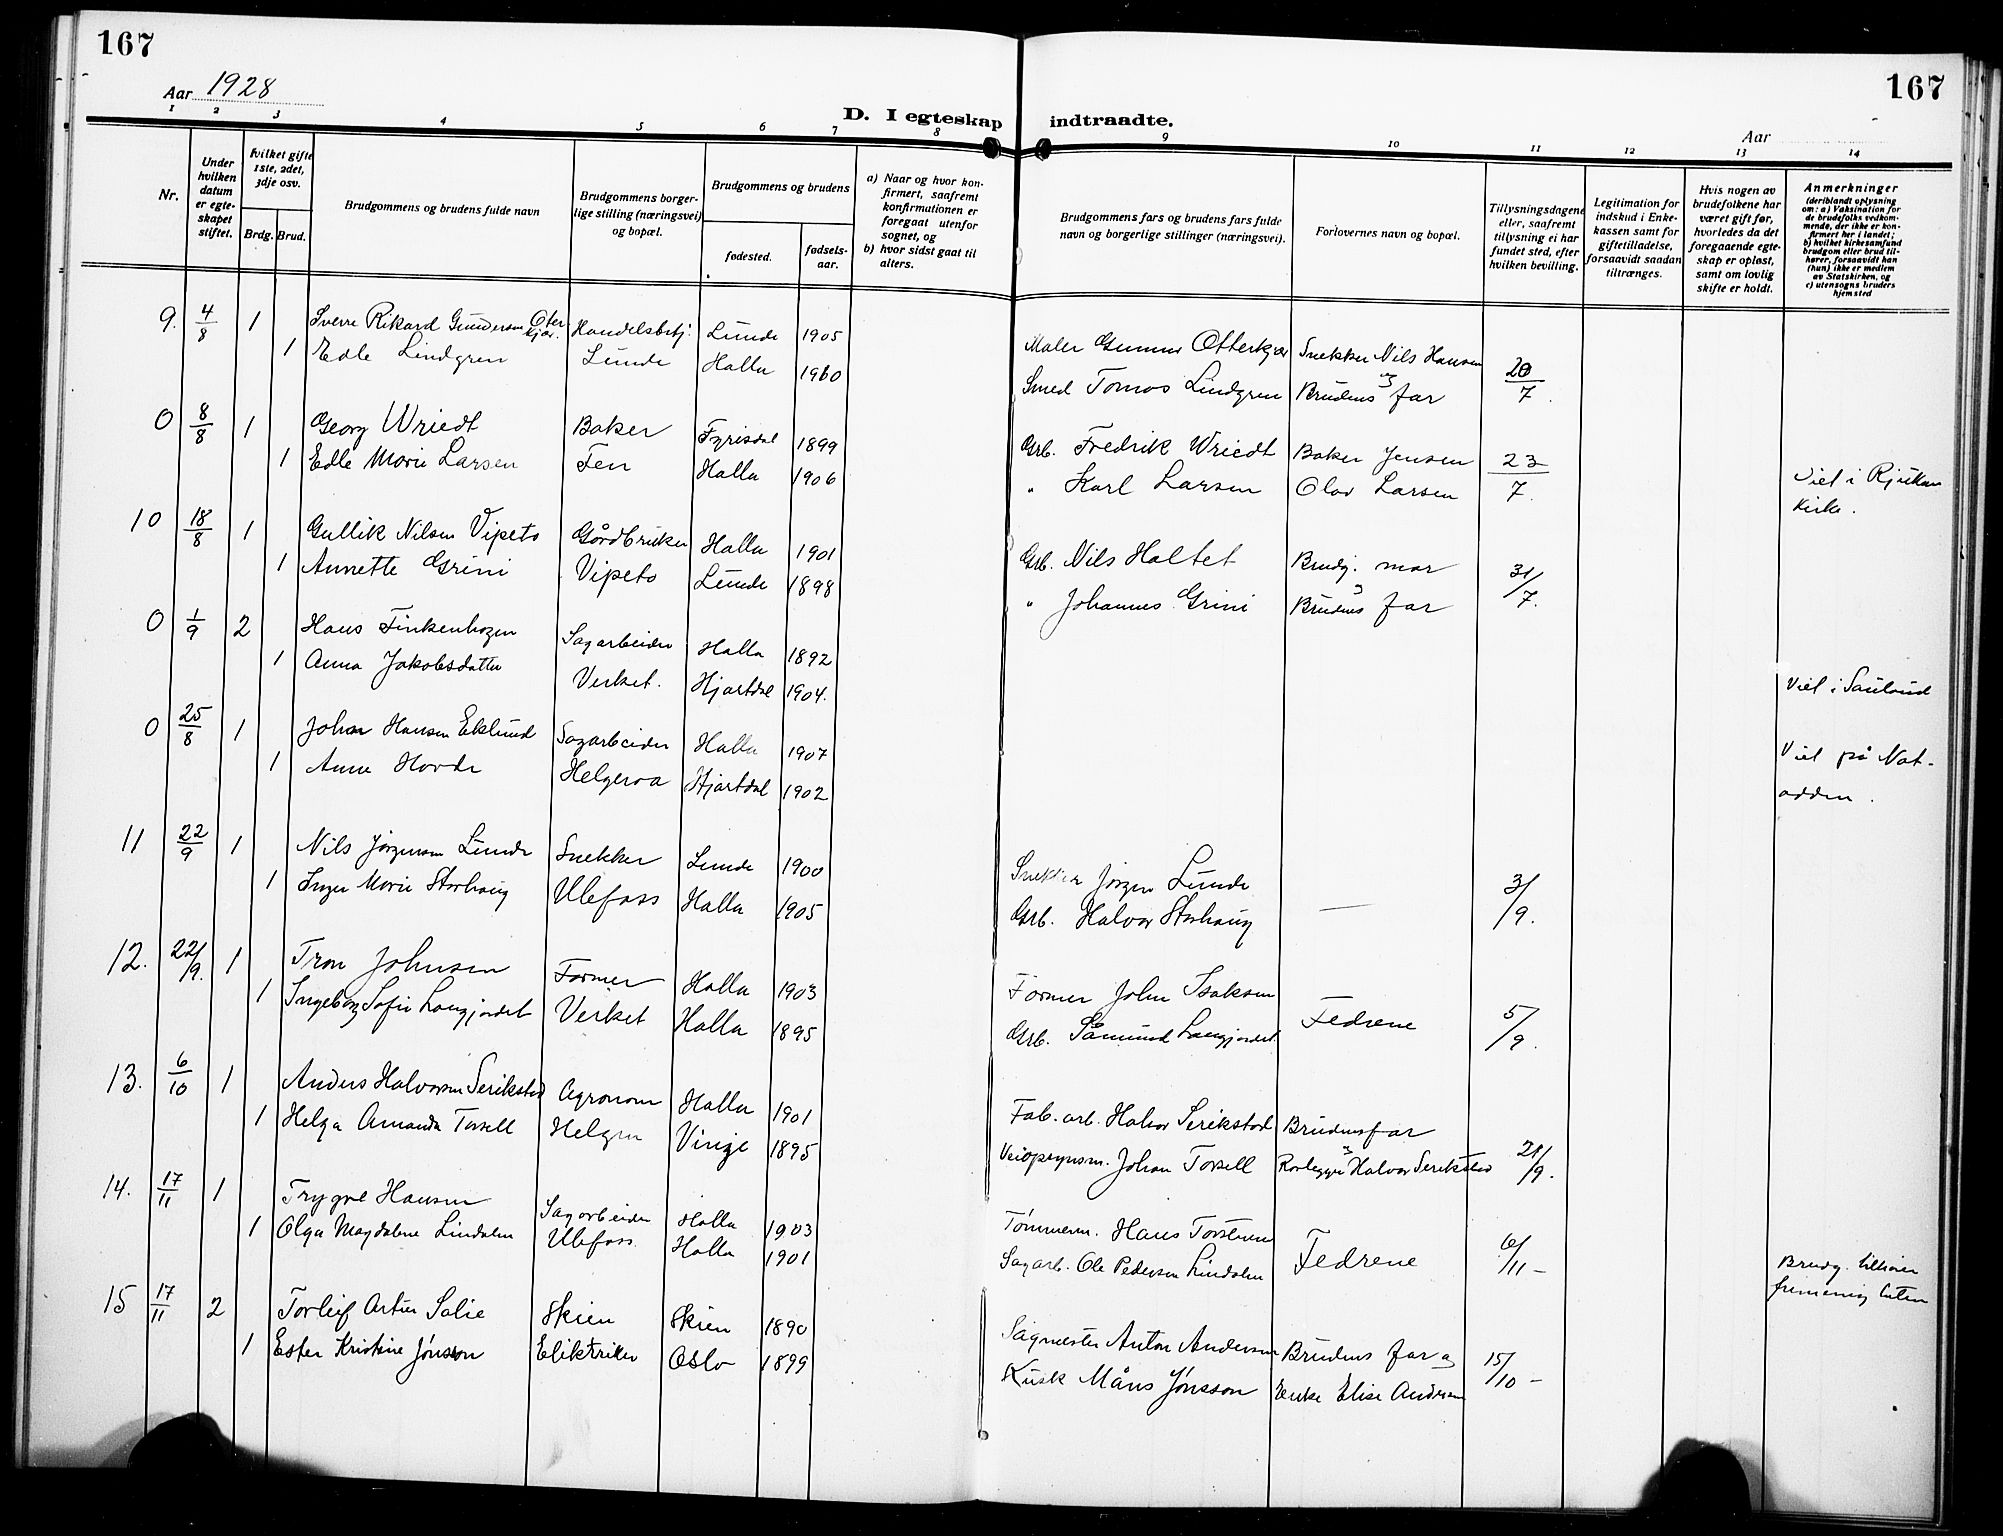 167
167
Aar 1928
D. I egteskap indtraadte.
Aar
1 2 3 4 5 6 7 8 9 10 11 12 13 14
Nr.
Under hvilken datum er egte-skapet stiftet.
hvilket gifte 1ste, 2det, 3dje osv.
Brdg. Brud.
Brudgommens og brudens fulde navn
Brudgommens borger-lige stilling (næringsvei) og bopæl.
Brudgommens og brudens
fødested.
fødsels-aar.
a) Naar og hvor kon-firmert, saafremt konfirmationen er foregaat utenfor sognet, og
b) hvor sidst gaat til alters.
Brudgommens fars og brudens fars fulde navn og borgerlige stillinger (næringsvei).
Forlovernes navn og bopæl.
Tillysningsdagene eller, saafremt tillysning ei har fundet sted, efter hvilken bevilling.
Legitimation for indskud i Enke-kassen samt for giftetilladelse, forsaavidt saadan tiltrænges.
Hvis nogen av brudefolkene har været gift før, hvorledes da det foregaaende egte-skap er opløst, samt om lovlig skifte er holdt.
Anmerkninger
(deriblandt oplysning om: a) Vaksination for de brudefolks vedkom-mende, der ikke er kon-firmert her i landet;
b) hvilket kirkesamfund brudgom eller brud til-hører, forsaavidt han (hun) ikke er medlem av Statskirken, og
c) utensogns bruders hjemsted
9. 4/8 1 Sverre Rikard Gundersen Oterkjær. Handelsbetj. Lunde 1905 Maler Gunnar Otterkjær Snekker Nils Hansen 20/7.
1 Edle Lindgren Lunde Holla 1900 Smed Tomas Lindgren og Brudens far
0 8/8 1 Georg Wriedt Baker Fyrisdal 1899 Grb. Fredrik Wriedt Baker Jensen 23/7.
1 Edle Marie Larsen Fen Holla 1906 " Karl Larsen Olav Larsen Viet i Rjukan Kirke.
10 18/8 1 Gullik Nilsen Vipeto Gårdbruker Holla 1901 Grb. Nils Haltet Brudg. mor 31/7.
1 Annette Grini Vipeto Lunde 1898 " Johannes Grini og Brudens far
0 1/9 2 Hans Finkenhagen Sagarbeider Holla 1892
1 Anna Jakobsdatter Verket. Hjartdal 1904. Viet i Sauland
0 25/8 1 Johan Hansen Eklund Sagarbeider Holla 1907 Viet på Not-
1 Anne Hovde Helgeroa Hjartdal 1902 odden.
11 22/9 1 Nils Jørgensen Lunde Snekker Lunde 1900 Snekker Jørgen Lunde 3/9.
1 Inger Marie Storhaug Ulefoss Holla 1905 Grb. Halvor Storhaug —
12. 22/9. 1 Tron Johnsen Former Holla 1903 Former John Isaksen Fedrene 5/9.
1 Ingeborg Sofie Langjordet Verket Holla 1895 Grb. Såmund Langjordet
13. 6/10 1 Anders Halvorsen Serikstad Agronom Holla 1901 Fab. arb. Halvor Serikstad Brudens far
1 Helga Amanda Torsell Helgen Vinje 1895 Veiopsynsm. Johan Torsell og Rørlegger Halvor Serikstad 21/9.
14. 17/11 1 Trygve Hansen Sagarbeider Holla 1903 Tømmerm. Hans Torstensen Fedrene 6/11 -
1 Olga Magdalene Lindalen Ulefoss Holla 1901 Sagarb. Ole Pedersen Lindalen
15 17/11 2 Torleif Artur Solie Skien Skien 1890 Sagmester Anton Andersen Brudens far og 15/10 - Brudg. tilhører frimenig. luten
1 Ester Kristine Jønsson Eliktriker Oslo 1899 Kusk Måns Jønsson Enke Elise Andersen